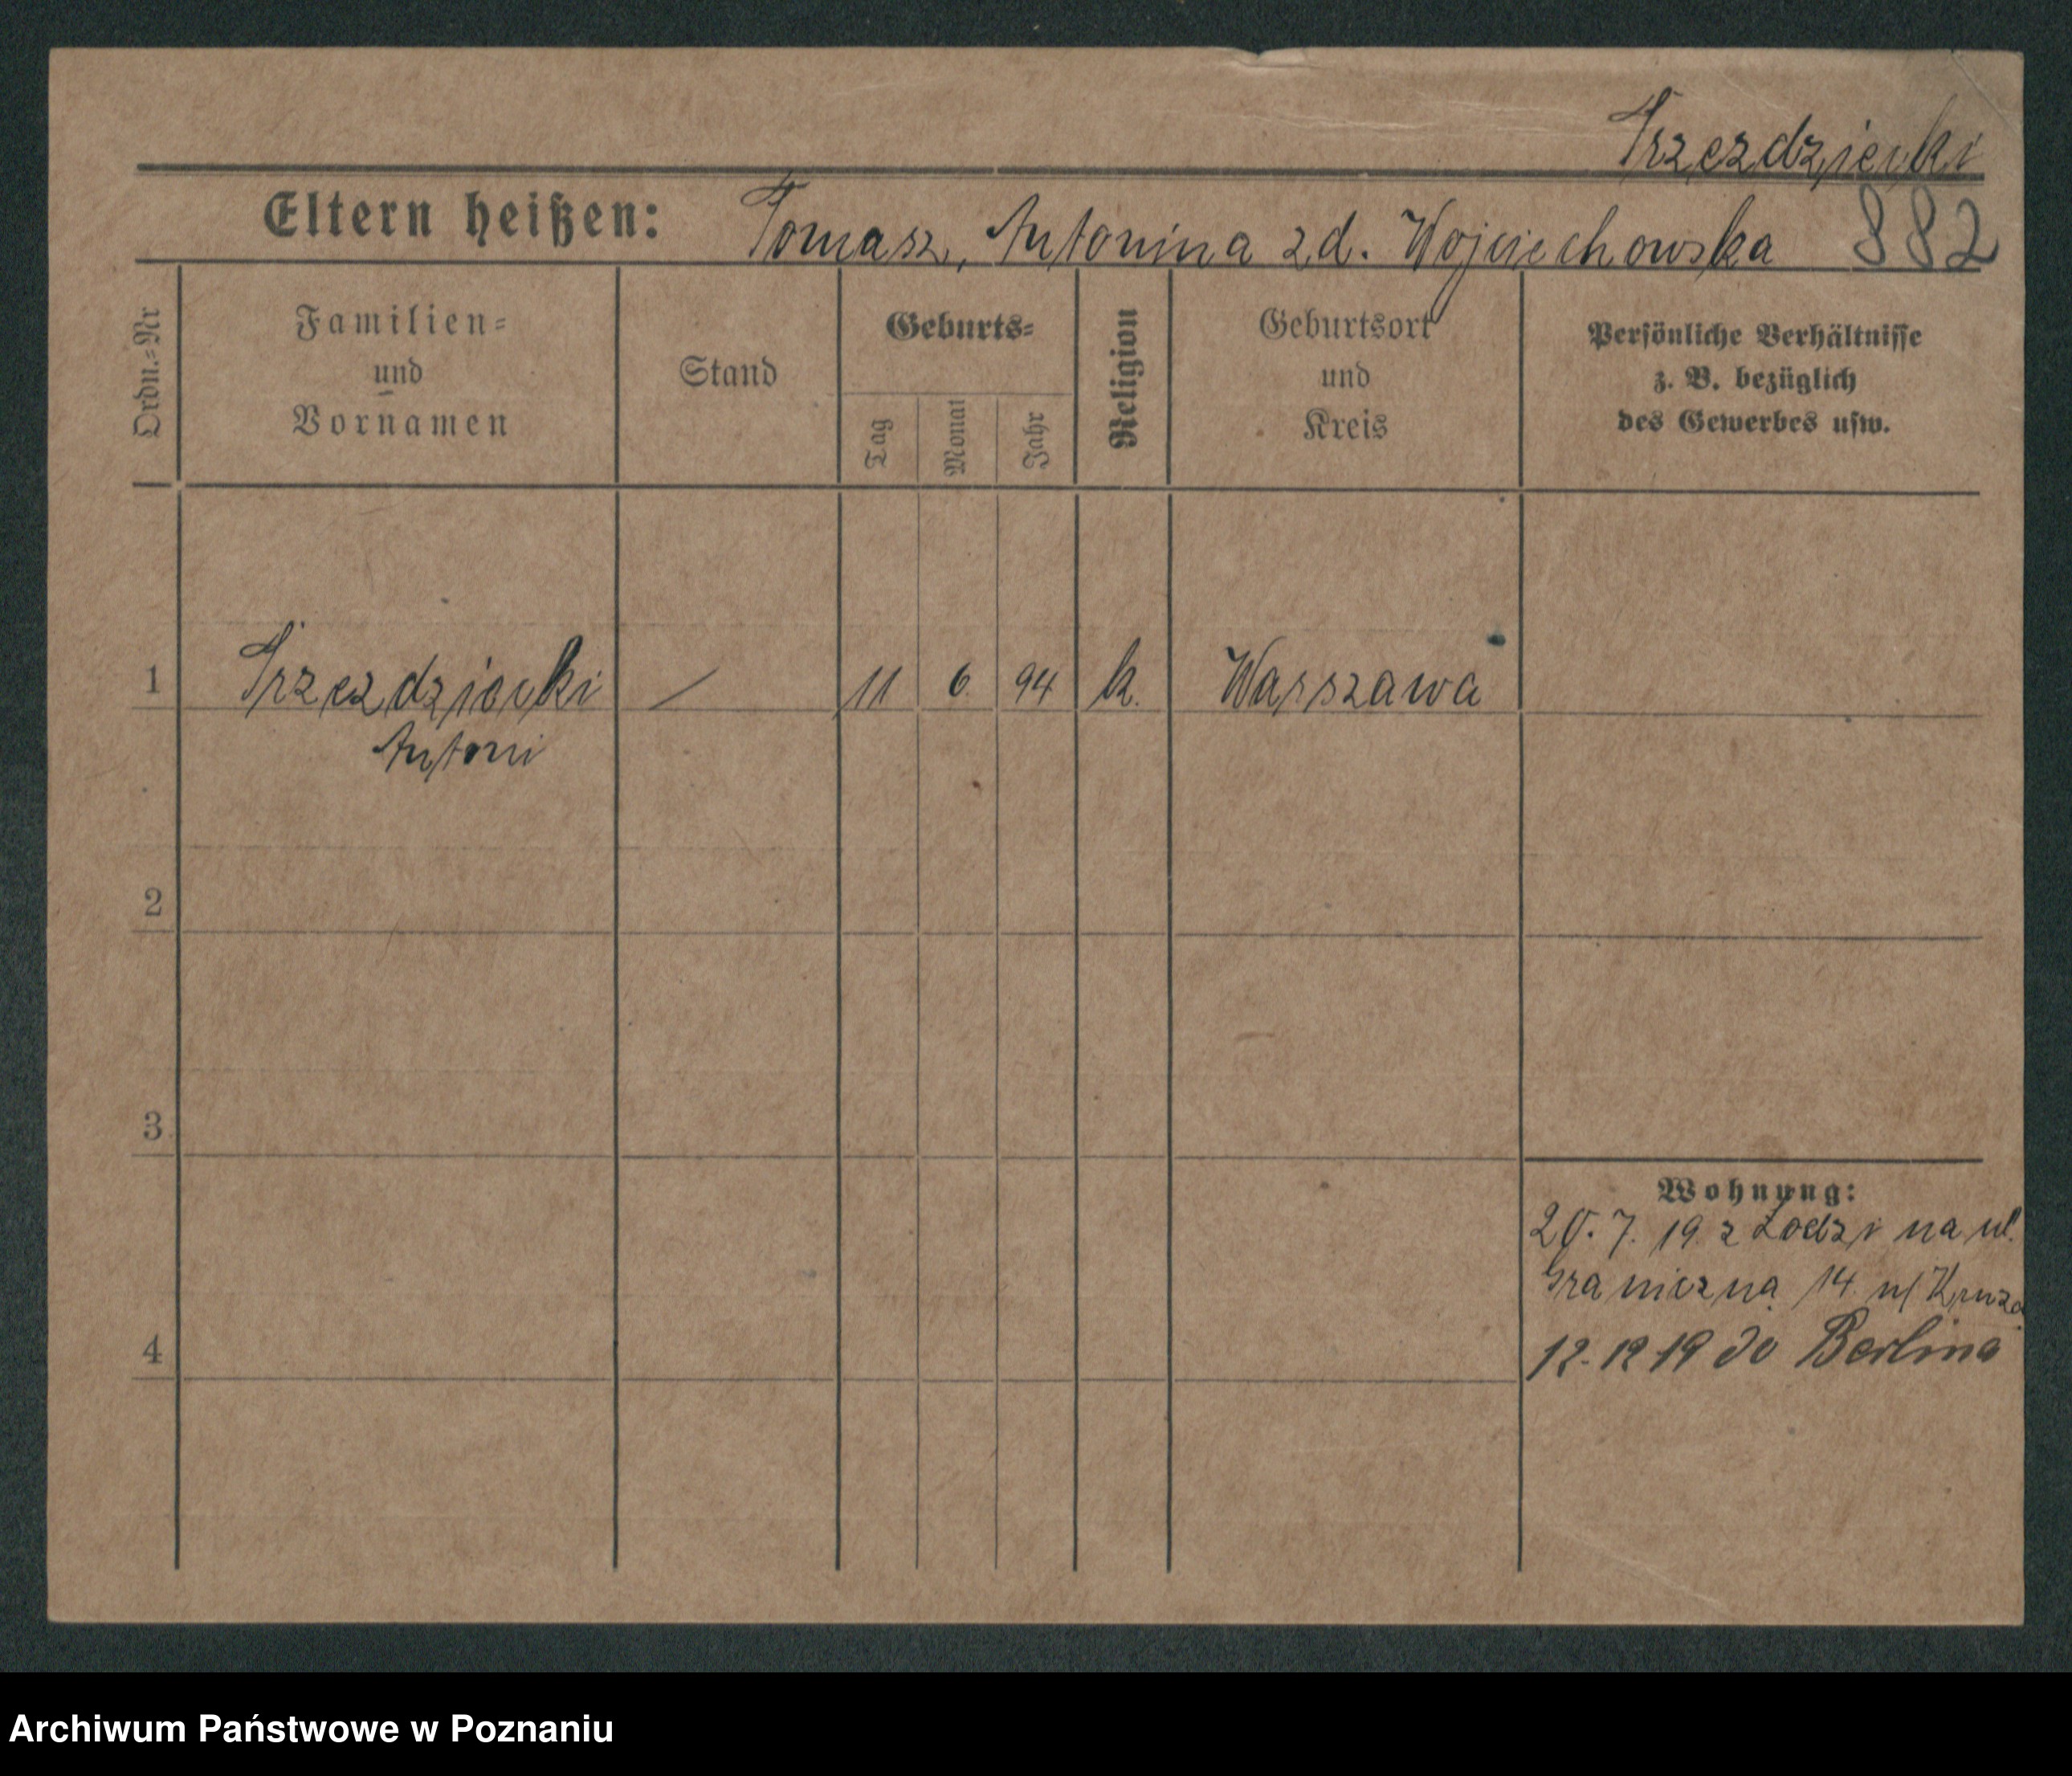 Trzezdziecki
Eltern heißen: Tomasz, Antonina zd. Wojciechowska 882
Ordn.=Nr
Familien=
und
Vornamen
Stand
Geburts=
Tag
Monat
Jahr
Religion
Geburtsort
und
Kreis
Persönliche Verhältnisse
z. B. bezüglich
des Gewerbes usw.
1 Trzezdziecki / 11 6 94 k. Warszawa
Antoni
2
3
Wohnung:
20. 7. 19. z Łodzi na ul.
Graniczną 14
12.12 19 do Berlina
4
Archiwum Państwowe w Poznaniu